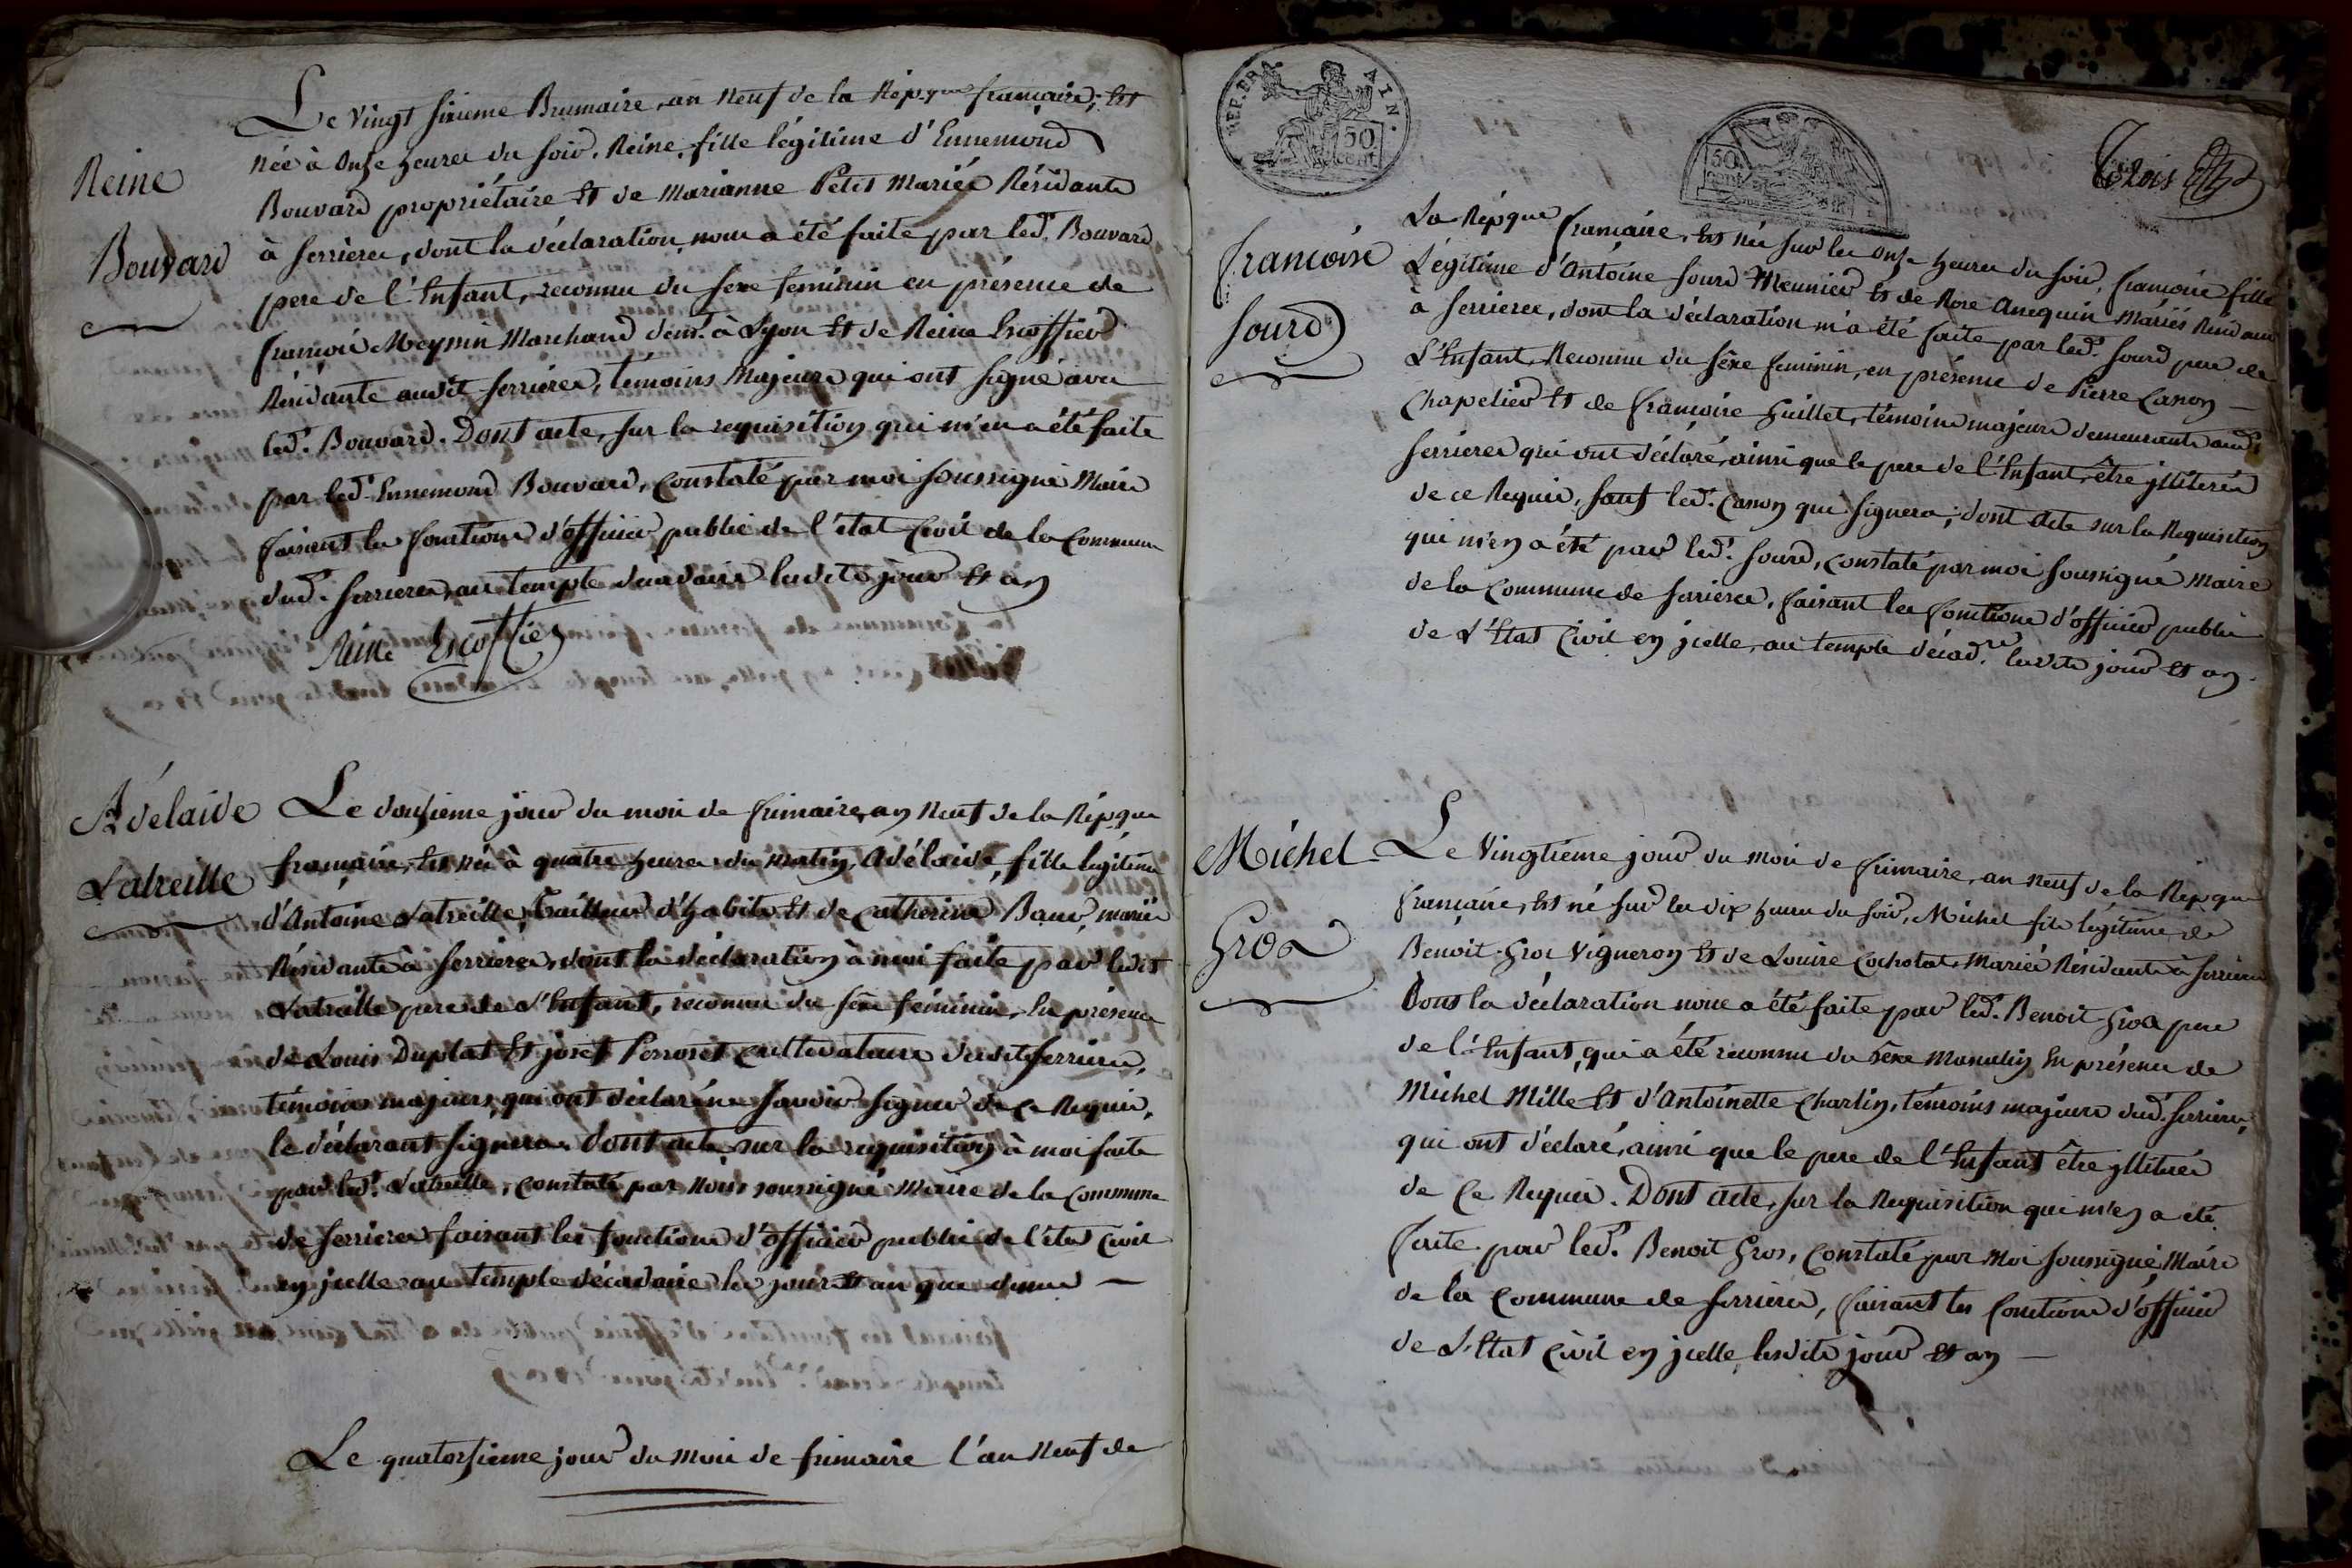 Le vingt sixieme Brumaire, an neuf de la Répque française, Est
née à onse heures du soir, Reine, fille légitime d'Ennemond
Reine
Bouvard propriétaire Et de Marianne Petit mariés Résidants
Bouvard
à serrieres, dont la déclaration nous a été faite par led. Bouvard
pere de l'Enfant, reconnu du sexe féminin en présence de
françois Meynin Marchand demt. à Lyon Et de Reine Escoffier
Résidante audit serrieres, témoins Majeurs qui ont signé avec
led. Bouvard. Dont acte, sur la requisition qui m'en a été faite
par led. Ennemond Bouvard, constaté par moi soussigné Maire
faisant les fonctions d'officier public de l'état civil de la Commune
dud. serrieres, au temple décadaire lesdits jour Et an
Reine Escoffier
Adélaide
Le dousieme jour du mois de frimaire, an neuf de la Répque
Latreille
française, Est née à quatre heures du matin, Adélaide, fille légitime
d'Antoine Latreille, Tailleur d'habits Et de Catherine mariés
Résidants à serrieres, dont la déclaration à moi faite par ledit
Latreille pere de L'Enfant, reconnu du sexe féminin, En présence
de Louis Duplat Et josef Perroset cultivateurs dudit serrieres,
témoins majeurs, qui ont déclaré ne savoir signer de ce Requis,
le déclarant signera. Dont acte, sur la requisition à moi faite
par led. Latreille, constaté par nous soussigné Maire de la commune
de serrieres faisant les fonctions d'officier public de l'état civil
en jcelle au temple décadaire les jour Et an que dessus
Le quatorsieme jour du mois de frimaire l'an neuf de
REP. FRA
50
cent.
50
cent.
Trois
françoise
Sourd
La Répque française, Est née sur les onse heures du soir, françoise fille
Légitime d'Antoine Sourd Meunier Et de Rose Anequin Mariés Résidants
à serrieres, dont la déclaration m'a été faite par led. Sourd pere de
L'Enfant, Reconnu du sexe feminin, en présence de Pierre Canon
Chapelier Et de françoise Guillet, témoins majeurs demeurants aud.
serrieres qui ont déclaré, ainsi que le pere de l'Enfant, être jlliterés
de ce Requis, sauf led. Canon qui signera; dont acte sur la Requisition
qui m'en a été par led. Sourd, constaté par moi soussigné Maire
de la Commune de serrieres, faisant les fonctions d'officier public
de L'Etat Civil en jcelle, au temple décadre. lesdits jour Et an.
Michel
Gros
Le Vingtieme jour du mois de frimaire, an neuf de la Répque
française, Est né sur les dix heures du soir, Michel fils légitime de
Benoit Gros Vigneron Et de Louise Cochotat, Mariés Résidants à serrieres
Dont la déclaration nous a été faite par led. Benoit Gros pere
de l'Enfant, qui a été reconnu du sexe Masculin En présence de
Michel Mille Et d'Antoinette Charlin, témoins majeurs dud. serrieres,
qui ont déclaré, ainsi que le pere de l'Enfant être jlliterés
de Ce Requis. Dont Acte, sur la Requisition qui m'en a été
faite par led. Benoit Gros, Constaté par Moi soussigné Maire
de la Commune de serrieres, faisant les fonctions d'officier
de L'Etat Civil en jcelle, lesdits jour Et an